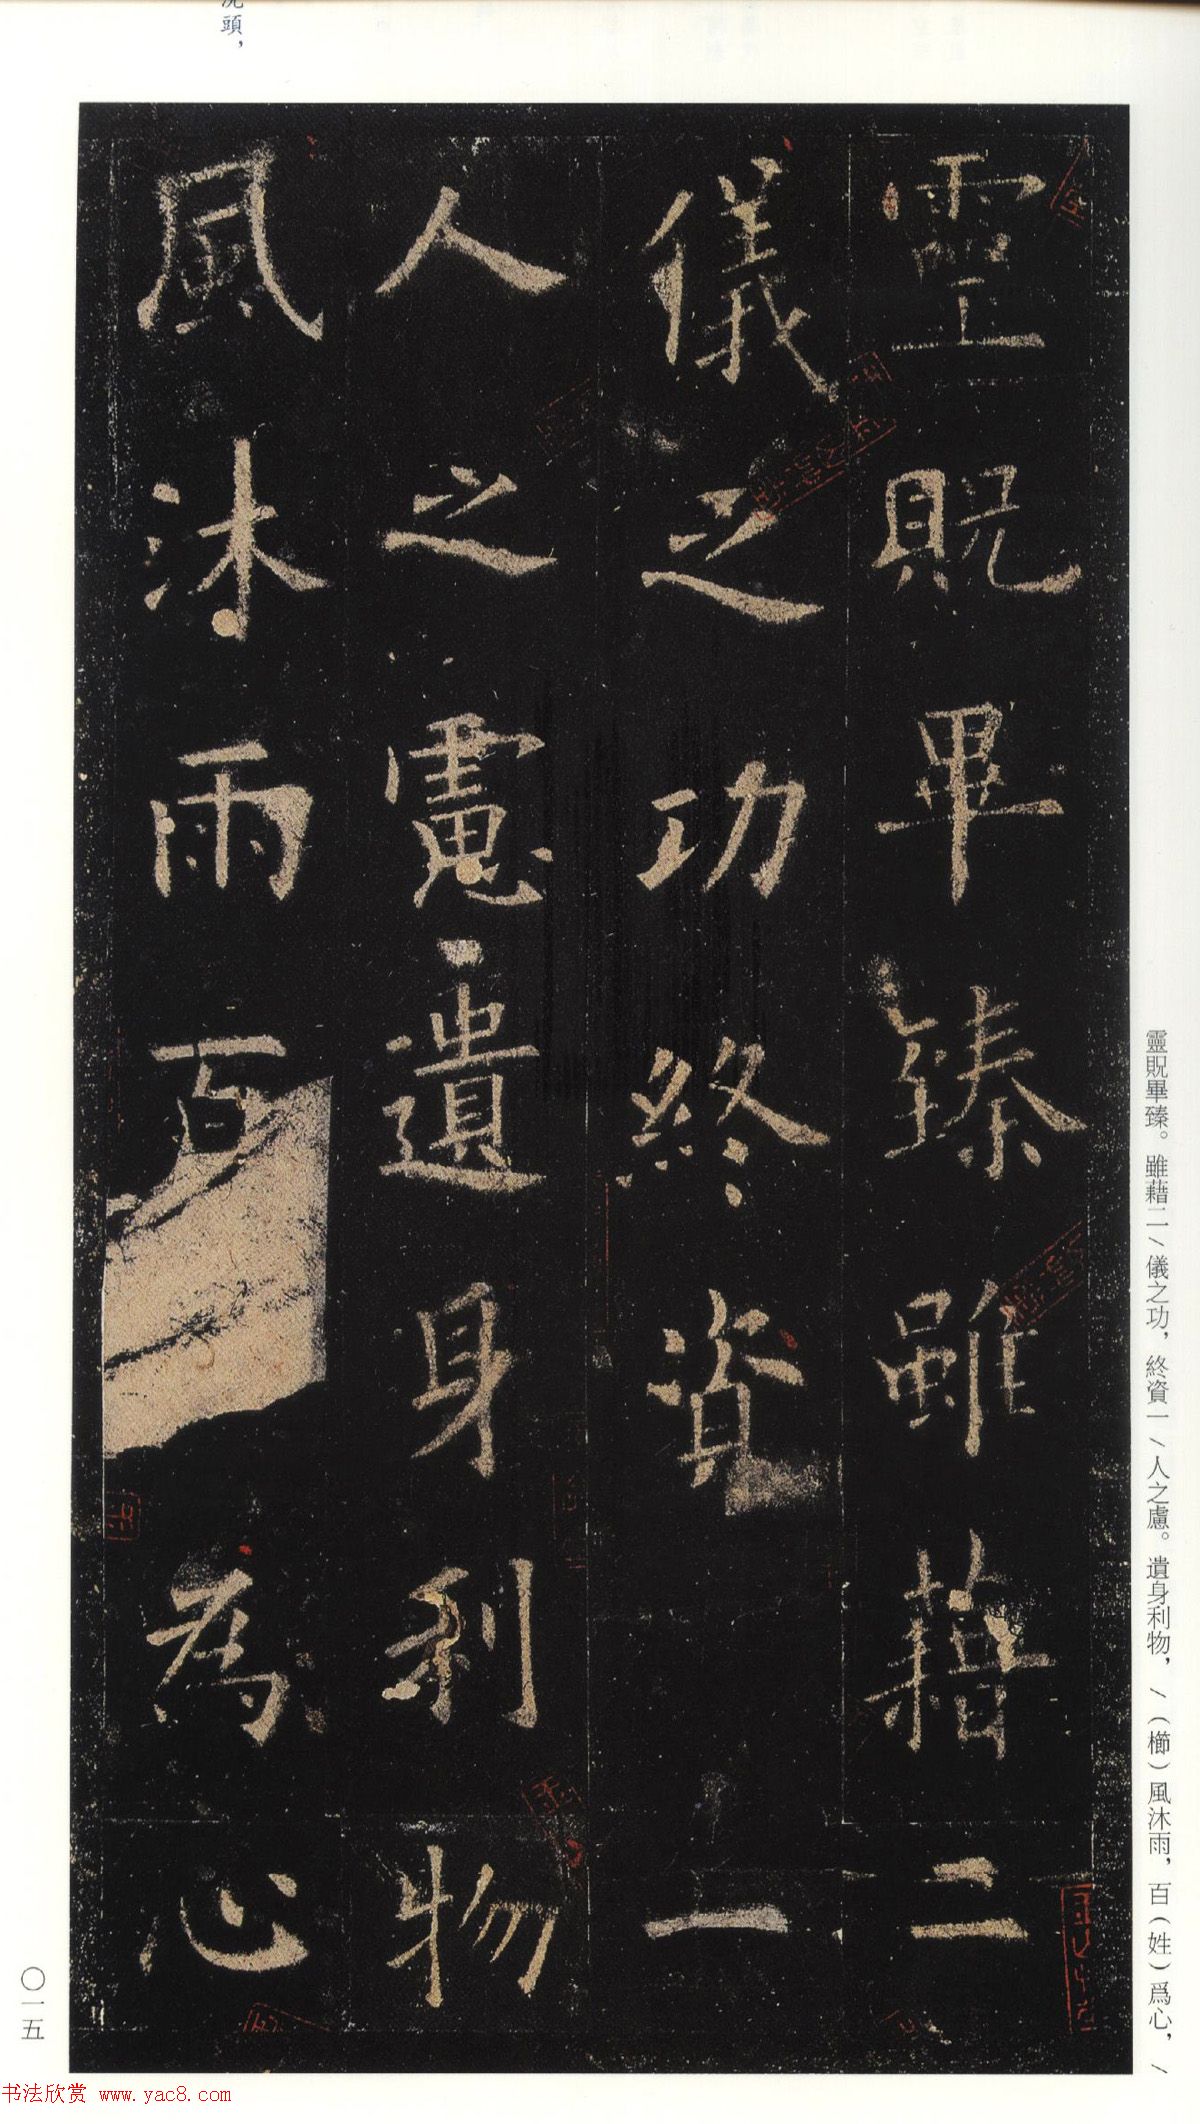 靈貺畢臻雖藉二
儀之功終資一
人之慮遺身利物
風沐雨百為心
靈貺畢臻。雖藉二／儀之功，終資一／人之慮。遺身利物，／（櫛）風沐雨，百（姓）爲心，／
頭，
〇一五
书法欣赏 www.yac8.com